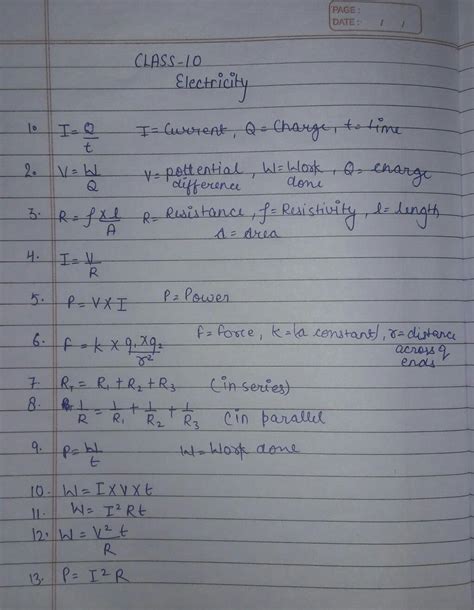 PAGE:
DATE: / /
CLASS-10
Electricity
1. I = Q/t I = Current, Q = Charge, t = time
2. V = W/Q V = pottential difference, W = Work done, Q = charge
3. R = ρ x l/A R = Resistance, ρ = Resistivity, l = length,
A = Area
4. I = V/R
5. P = V x I P = Power
6. F = k x q₁ x q₂/r² F = force, k = (a constant), r = distance
across q
ends
7. R_T = R₁ + R₂ + R₃ (in series)
8. 1/R = 1/R₁ + 1/R₂ + 1/R₃ (in parallel
9. P = W/t W = Work done
10. W = I x V x t
11. W = I² R t
12. W = V² t/R
13. P = I² R